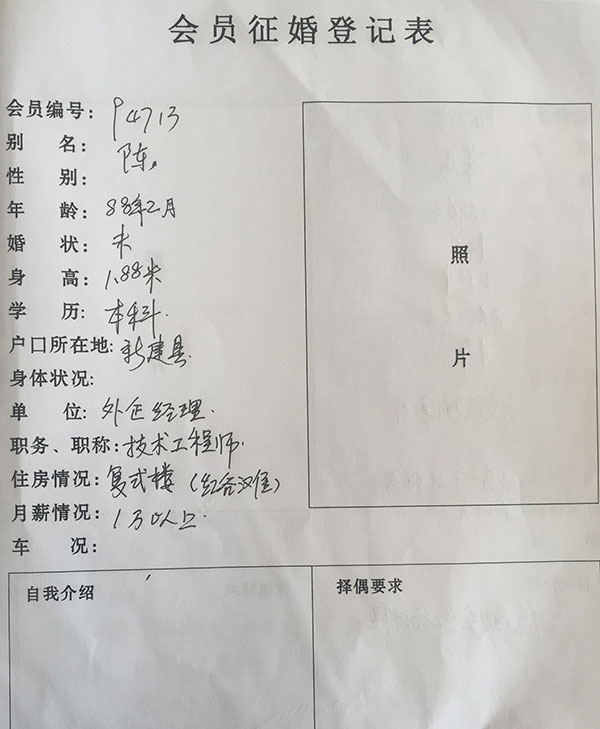 会员征婚登记表
会员编号: 94713
别 名: 陈
性 别:
年 龄: 88年2月
婚 状: 未
身 高: 1.88米
学 历: 本科.
户口所在地: 新建县.
身体状况:
单 位: 外企经理.
职务、职称: 技术工程师.
住房情况: 复式楼（红谷滩）
月薪情况: 1万以上.
车 况:
照
片
自我介绍
择偶要求